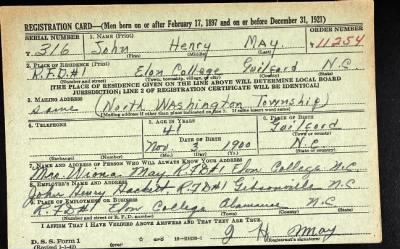 REGISTRATION CARD—(Men born on or after February 17, 1897 and on or before December 31, 1921)
SERIAL NUMBER 1. NAME (Print) ORDER NUMBER
T 316 John Henry May 11254
(First) (Middle) (Last)
2. PLACE OF RESIDENCE (Print)
R.F.D#1 Elon College Guilford N.C
(Number and street) (Town, township, village, or city) (County) (State)
[THE PLACE OF RESIDENCE GIVEN ON THE LINE ABOVE WILL DETERMINE LOCAL BOARD
JURISDICTION; LINE 2 OF REGISTRATION CERTIFICATE WILL BE IDENTICAL]
3. MAILING ADDRESS
Same (North Washington Township)
[Mailing address if other than place indicated on line 2. If same insert word same]
4. TELEPHONE 5. AGE IN YEARS 6. PLACE OF BIRTH
41 Guilford
DATE OF BIRTH (Town or county)
Nov. 3 1900 N.C
(Exchange) (Number) (Mo.) (Day) (Yr.) (State or country)
7. NAME AND ADDRESS OF PERSON WHO WILL ALWAYS KNOW YOUR ADDRESS
Mrs. May R.F.D#1 Elon College N.C
8. EMPLOYER'S NAME AND ADDRESS
John Henry R.F.D#1 Gibsonville N.C
9. PLACE OF EMPLOYMENT OR BUSINESS
R.F.D#1 Elon College Alamance N.C
(Number and street or R. F. D. number) (Town) (County) (State)
I AFFIRM THAT I HAVE VERIFIED ABOVE ANSWERS AND THAT THEY ARE TRUE.
D. S. S. Form 1 J H May
(Revised 1-1-42) (over) (Registrant's signature)